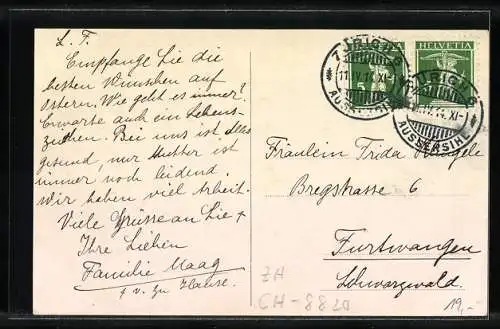 L. F.
Empfange Sie die
besten Wünschen auf
Ostern. Wie geht es immer?
Erwarte auch ein Lebens-
zeichen. Bei uns ist alles
gesund, nur Mutter ist
immer noch leidend.
Wir haben viel Arbeit.
Viele Grüsse an Sie +
Ihre Lieben
Familie Maag
z. Hause.
HELVETIA
5
ZÜRICH 6
11.IV.14.XI-
AUSSERSIHL
ZÜRICH 6
IV.14.XI-
AUSSERSIHL
Fräulein Frida
Bregstrasse 6
Furtwangen
Schwarzwald.
ZH
CH-8820
19,-